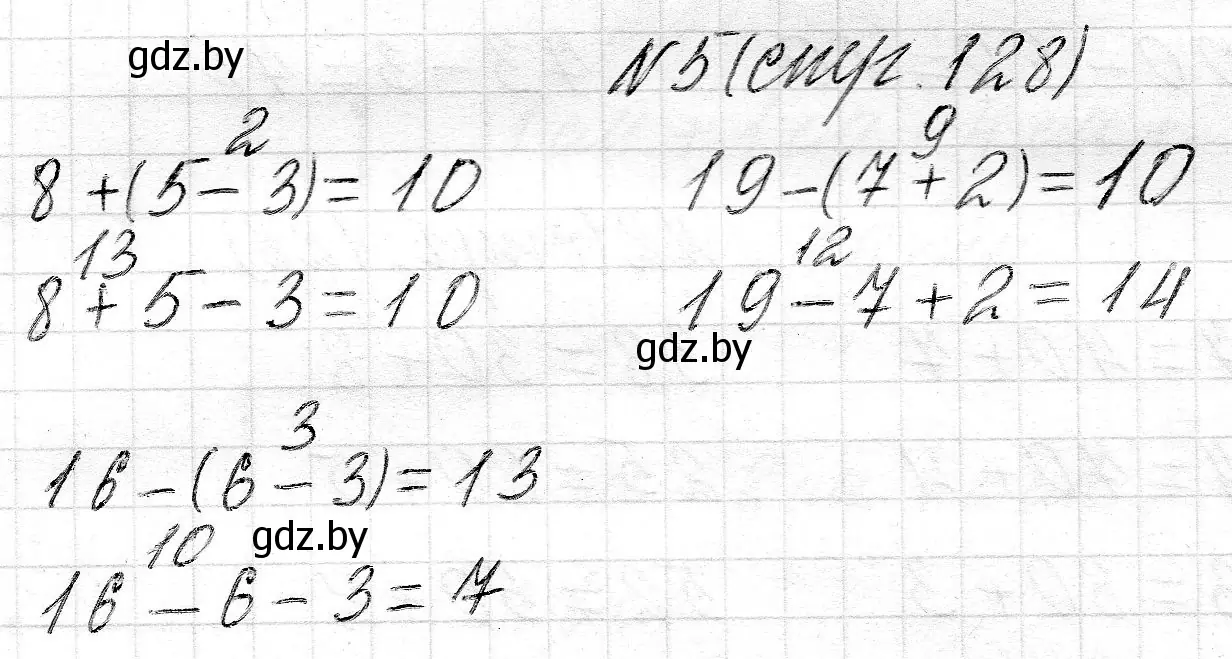 gdz.by
N5 (стр. 128)
2
8 + (5 - 3) = 10
13
8 + 5 - 3 = 10
9
19 - (7 + 2) = 10
12
19 - 7 + 2 = 14
gdz.by
3
16 - (6 - 3) = 13
10
gdz.by
16 - 6 - 3 = 7